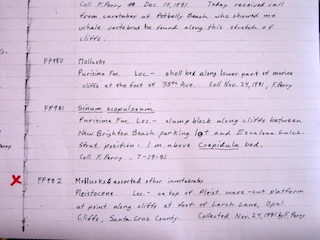 Coll. F. Perry Dec. 10, 1981. Today received call
from caretaker at Potbelly Beach who showed me
whale vertebrae found along this stretch of
cliffs.
FP980 Mollusks
Purisima Fm. Loc.- shell bed along lower part of marine
cliffs at the foot of 38th Ave. Coll Nov. 24, 1981, F. Perry
FP981 Sinum scopulosum
Purisima Fm. Loc.- slump block along cliffs between
New Brighton Beach parking lot and Escalona Gulch.
Strat. position: 1m above Crepidula bed.
Coll. F. Perry. 7-19-81.
X FP982 Mollusks & assorted other invertebrates
Pleistocene. Loc.- on top of Pleist. wave-cut platform
at point along cliffs at foot of Larch Lane, Opal
Cliffs, Santa Cruz County. Collected Nov. 24, 1981 by F. Perry